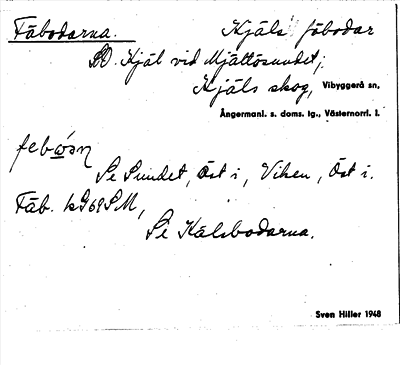 Fäbodarna. Hjäls fäbodar
SO. Hjäl vid Mjältösundet;
Hjäls skog, Vibyggerå sn,
Ångermanl. s. doms. lg., Västernorrl. l.
febωsn
Se Sundet, Öst i, Viken, Öst i.
Fäb. kG69SM,
Se Kälsbodarna.
Sven Hiller 1948